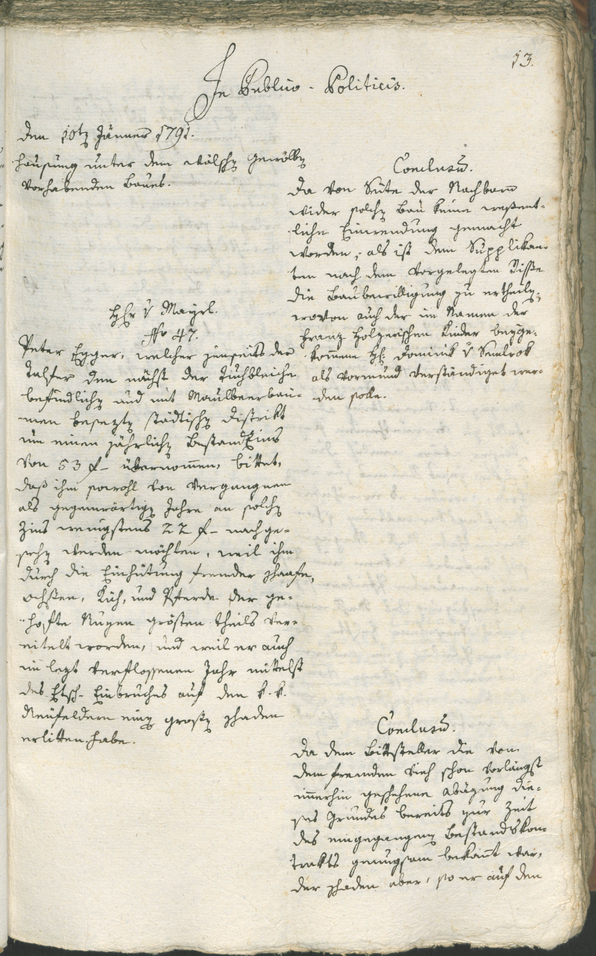 13.
In Publico - Politicis.
den 10tn Jänner 1791.
hausung unter den wälschn Gewölbn
vorhabenden Baues.
Conclusum.
Da von Seite der Nachbarn
wider solchn Bau keine wesent-
liche Einwendung gemacht
worden; als ist dem Supplikan-
ten nach dem vorgelegten Risse
die Baubewilligung zu ertheiln,
wovon auch der im Namen der
Franz Holzerischen Kinder beyge-
kommne Hr. Dominik v
als Vormund verständiget wer-
den solle.
Hr v Mayrl.
No 47
Peter Egger, welcher jenseits der
Talfer den nächst der Tuchbleiche
befindlichn und mit Maulbeerbäu-
men besezten städtischn Distrikt
um einen jährlichn Bestandzins
von 53 f übernommen, bittet,
daß ihm sowohl von vergangnen
als gegenwärtign Jahre an solchn
Zins wenigstens 22 f nachge-
sehn werden möchten, weil ihm
durch die Einhütung fremder Schaafe,
Ochsen, Küh, und Pferde der ge-
hofte Nuzen grösten theils ver-
eitelt worden, und weil er auch
im lezt verflossenen Jahr mittelst
des Etsch-Einbruches auf den k. k.
Neufeldern einn großn Schaden
erlitten habe.
Conclusum.
Da dem Bittsteller die von
dem fremden Vieh schon vorlängst
immerhin geschehene Abäzung die-
ses Grundes bereits zur Zeit
des eingegangenn Bestandskon-
trakts genugsam bekannt war,
der Schaden aber, so er auf den